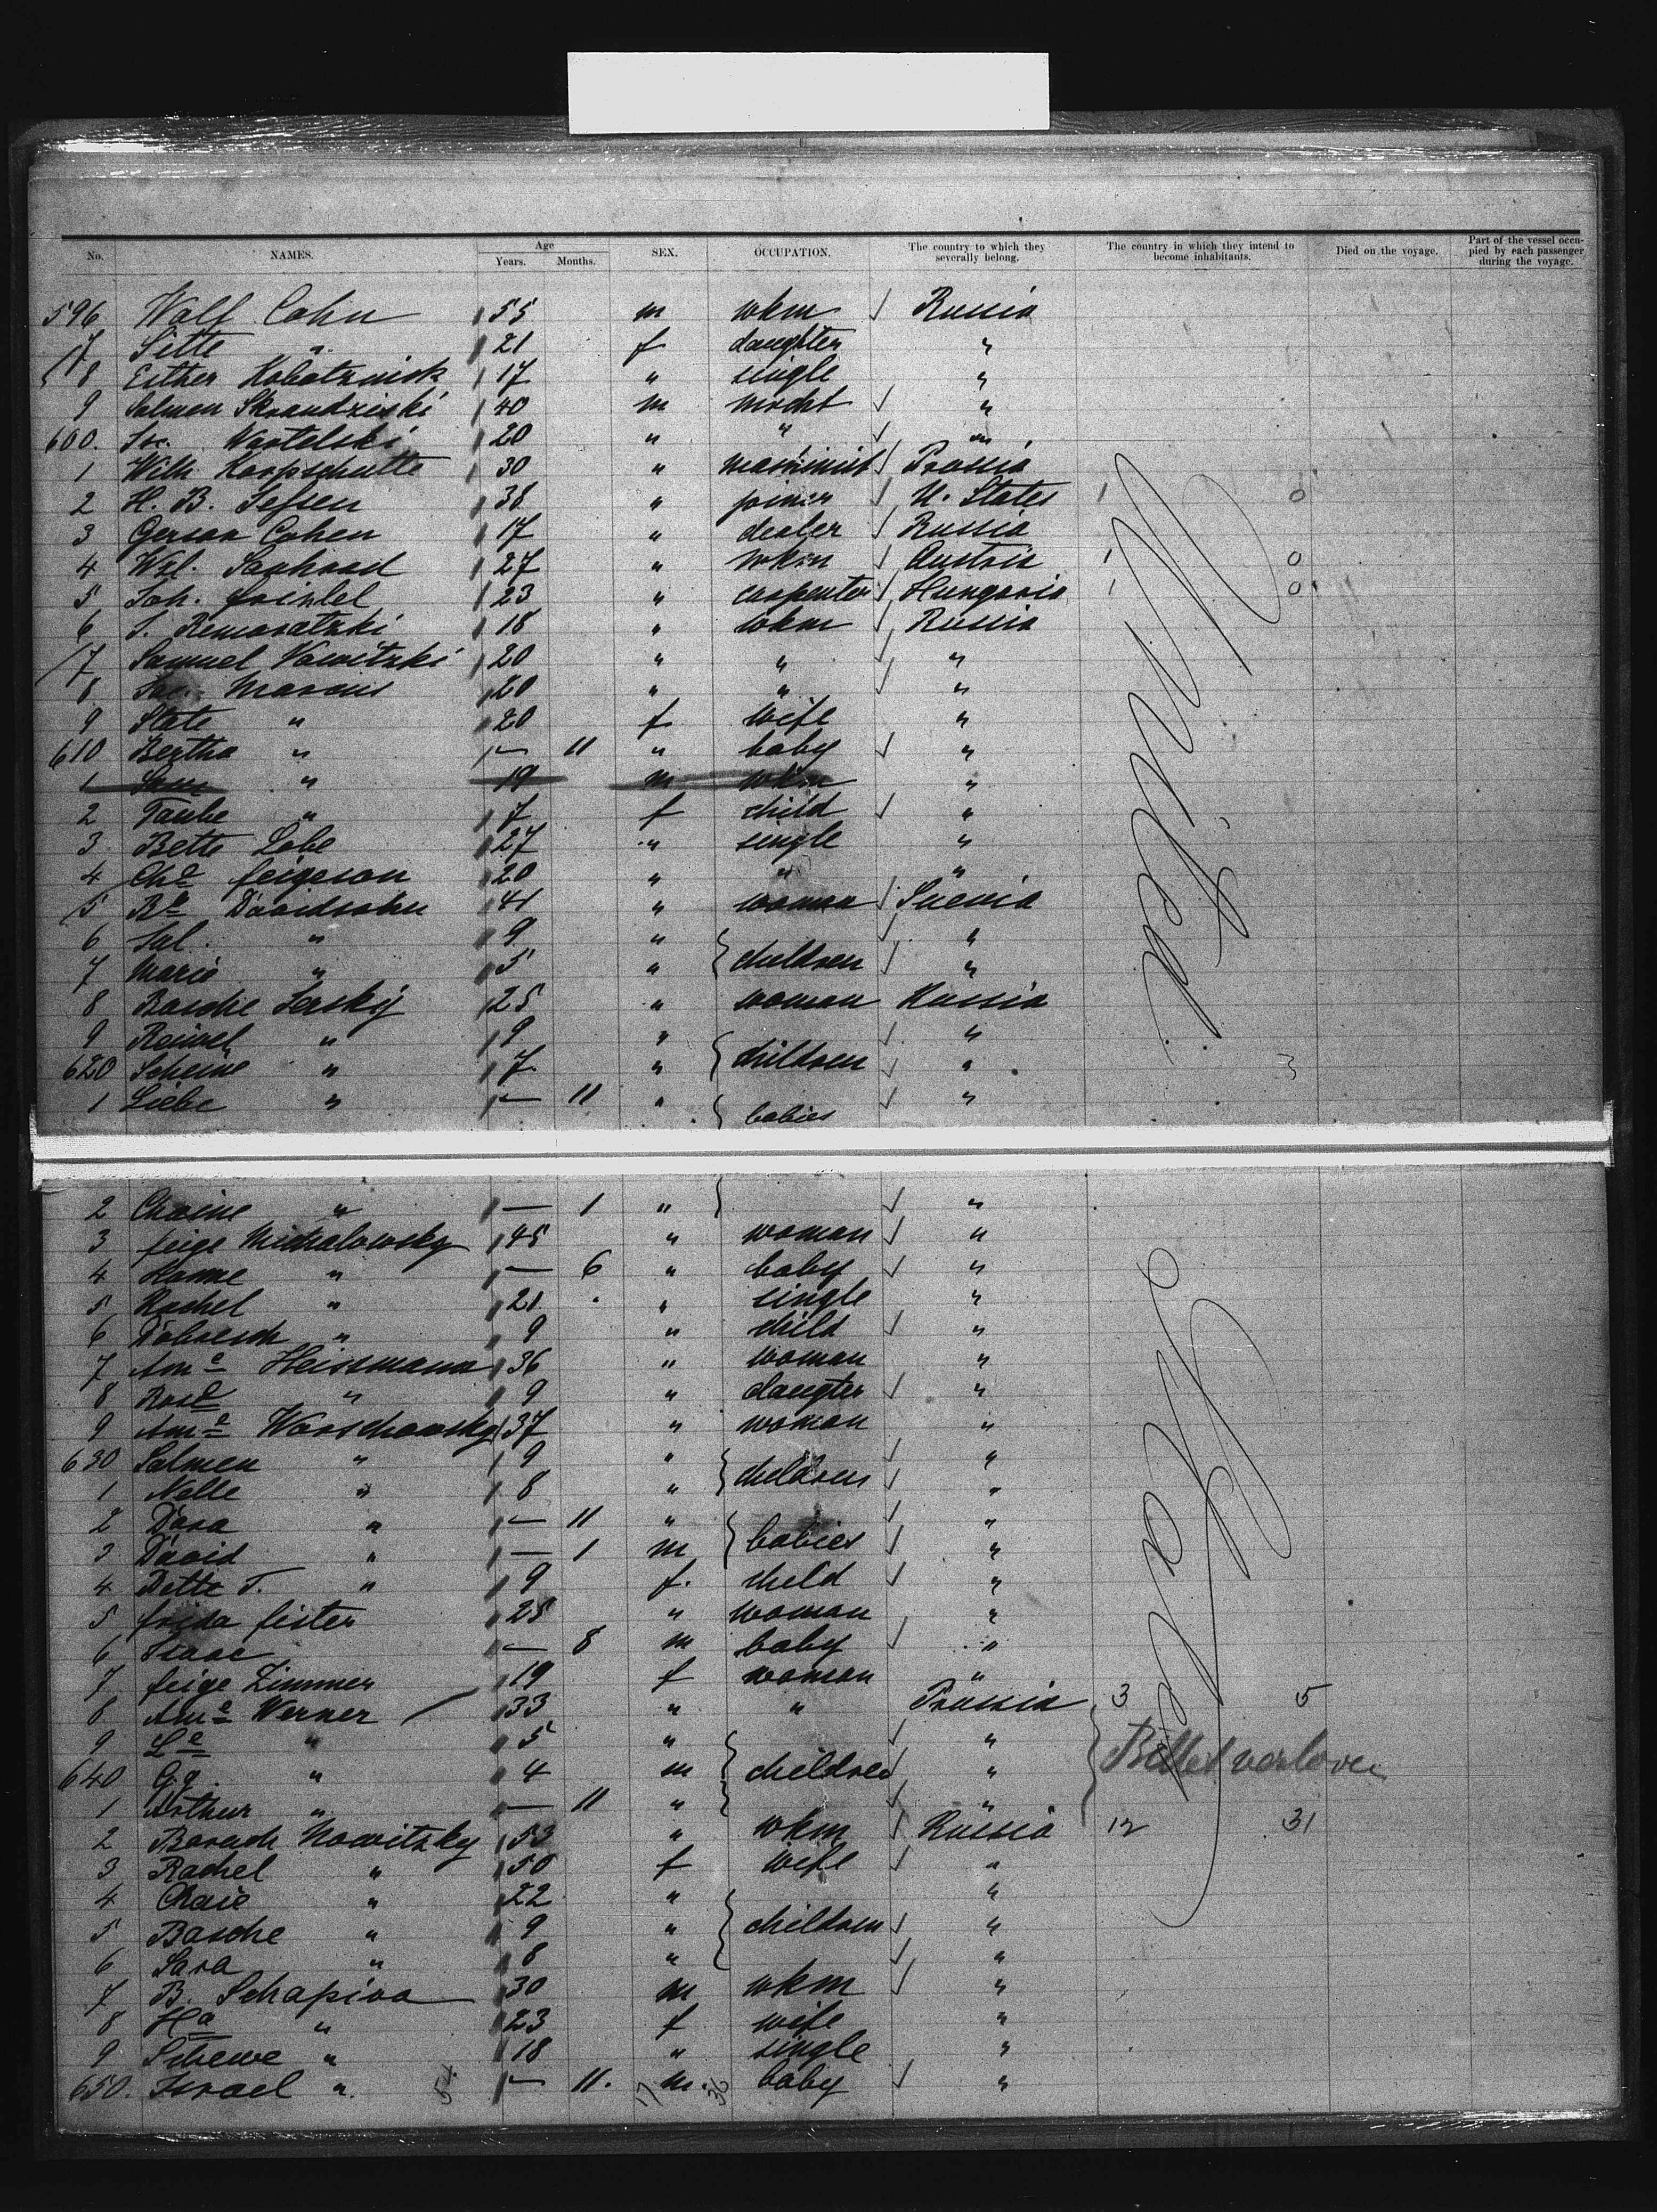 No. NAMES. Age Years. Months. SEX. OCCUPATION. The country to which they severally belong. The country in which they intend to become inhabitants. Died on the voyage. Part of the vessel occupied by each passenger during the voyage.
596 Wolf Cohn 55 m wkm ✓ Russia
7 Sitte " 21 f daughter "
8 Esther 17 " single "
9 Salmen 40 m mscht ✓ "
600. 20 " " ✓ "
1 Wilh. Karpschutte 30 " maschinist ✓ Prussia
2 H. B. 38 " joiner ✓ U. States 1 0
3 Gerson Cohen 17 " dealer ✓ Russia
4 27 " wkm ✓ Austria 1 0
5 Joh. 23 " carpenter ✓ Hungaria 1 0
6 18 " wkm ✓ Russia
7 Samuel 20 " " ✓ "
8 Marcus 20 " " ✓ "
9 State " 20 f wife "
610 Bertha " — 11 " baby ✓ "
1 Sam " 19 m wkm "
2 Taube " 7 f child ✓ "
3 Bette Lobe 27 " single "
4 Feigeson 20 " " "
5 Davidsohn 41 " woman ✓ Suecia
6 Sal. " 9 " ✓ "
7 Marie " 5 " children ✓ "
8 Basche Lersky 25 " woman Russia
9 " 9 " ✓ "
620 Scheine " 7 " children ✓ "
1 Liebe " — 11 " babies ✓ "
2 Chaine " — 1 " ✓ "
3 Feige Michalowsky 45 " woman ✓ "
4 Hanne " — 6 " baby ✓ "
5 Rachel " 21 " single "
6 Dobresch " 9 " child ✓ "
7 Am<sup>e</sup> Heissmann 36 " woman "
8 " 9 " daugter ✓ "
9 Am<sup>e</sup> Warschawsky 37 " woman "
630 Salmen " 9 " ✓ "
1 Nelle " 8 " children ✓ "
2 Dora " — 11 " ✓ "
3 David " — 1 m babies ✓ "
4 Bette T. " 9 f. child ✓ "
5 Frida Fister 25 " woman "
6 Isaac — 8 m baby ✓ "
7 Feige Zimmer 19 f woman "
8 Am<sup>e</sup> Werner 33 " " Prussia 3 5
9 L<sup>e</sup> " 5 " ✓ "
640 Gg. " 4 m children ✓ " Billet verloren
1 Arthur " — 11 " ✓ "
2 Baruch Nowitzky 53 " wkm ✓ Russia 12 31
3 Rachel " 50 f wife ✓ "
4 Chaie " 22 " "
5 Basche " 9 " children ✓ "
6 Sara " 8 " ✓ "
7 B. Schapira 30 m wkm ✓ "
8 H<sup>a</sup> " 23 f wife "
9 Schewe " 18 " single "
650. Israel " — 11. m. baby ✓ "
54 17 36